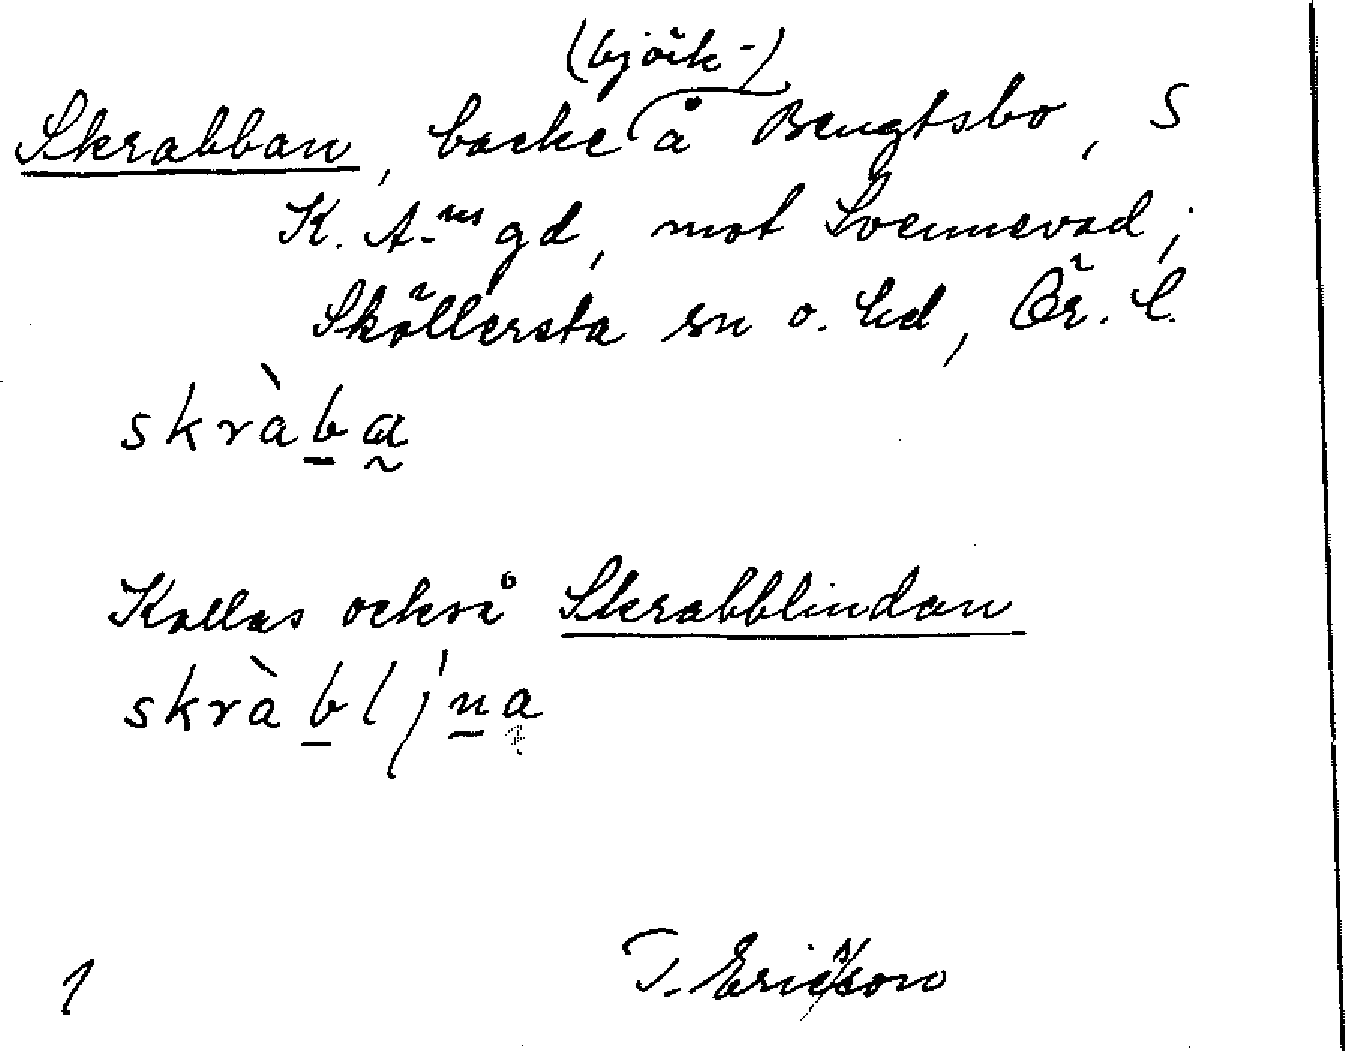 (björk-)
Skrabban, backe å Bengtsbo, S
K. A-ms gd, mot Svennevad;
Sköllersta sn o. hd, Ör. l.
skràba
Kallas också Skrabblindan
skràbljna
1 T. Ericsson